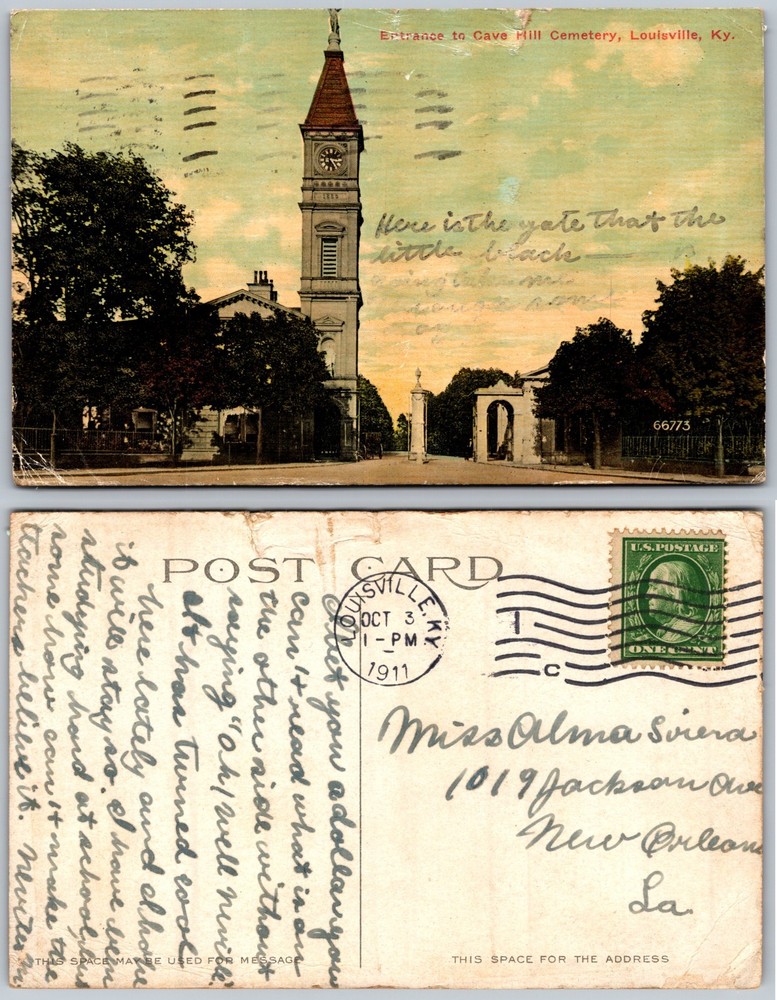 Entrance to Cave Hill Cemetery, Louisville, Ky.
Here is the gate that the
little black
66773
POST CARD
U.S. POSTAGE
ONE CENT
LOUISVILLE, KY.
OCT 3
1-PM
1911
C
I bet you a dollar you
can't read what is on
the other side without
saying "Oh! Well
It has turned cool
here lately and I hope
it will stay so. I have been
studying hard at school but
some how can't make the
teachers believe it.
Miss Alma
1019 Jackson Ave
New Orleans
La.
THIS SPACE MAY BE USED FOR MESSAGE
THIS SPACE FOR THE ADDRESS